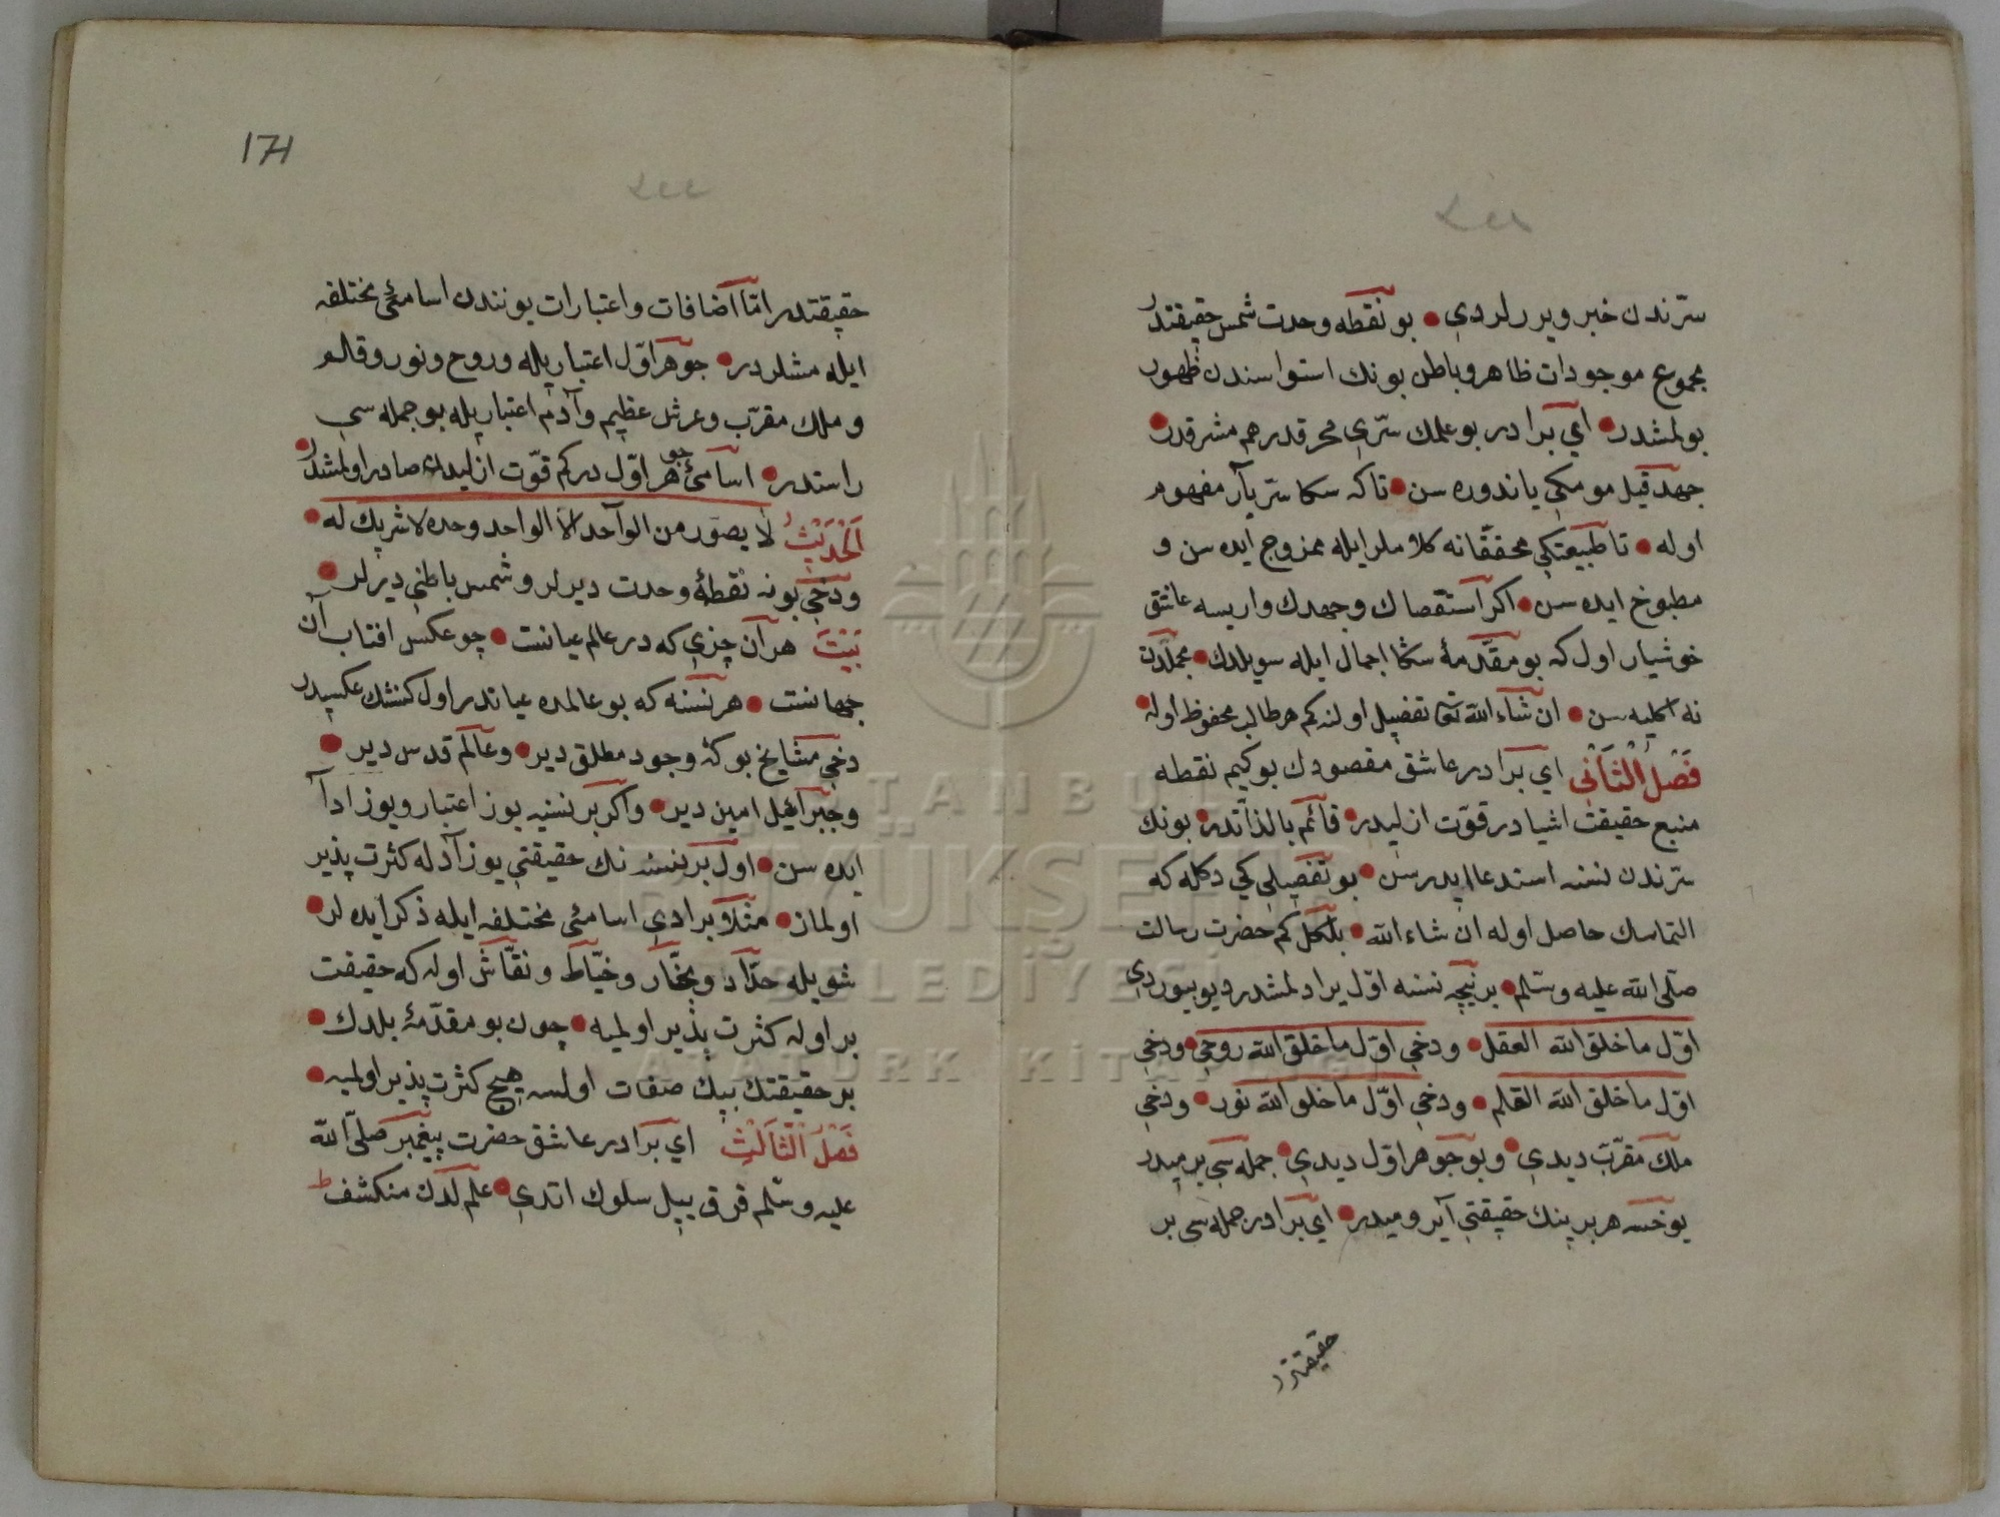 سرّندن خبر ويررلردي • بو نقطه وحدت شمس حقيقتدر
مجموع موجودات ظاهر و باطن بونك استواسندن ظهور
بولمشدر • اي برادر بو علمك سرّي محرقدر هم مشرقدر
جهد قيل مومكي ياندوره سن • تاكه سكا سرّ يار مفهوم
اوله • تا طبيعتكي محققانه كلاملر ايله ممزوج ايده سن و
مطبوخ ايده سن • اكر استقصاك و جهدك واريسه عاشق
خوشيار اول كه بو مقدّمۀ سكا اجمال ايله سويلدك • مجملدن
نه اكليه سن • ان شاء الله تعا تفضيل اولنه كم هر طالب محفوظ اوله •
فصل الثاني اي برادر عاشق مقصودك بو كيم نقطه
منبع حقيقت اشيادر قوّت ازليدر • قائم بالذاتدر • بونك
سرّندن نسنه استدعا ايدرسن • بو تفضيلي كي دكله كه
التماسك حاصل اوله ان شاء الله • بلكل كم حضرت رسالت
صلّى الله عليه وسلم • بر نيچه نسنه اوّل يرادلمشدر ديو بيوردي
اوّل ما خلق الله العقل • ودخي اوّل ما خلق الله روحي • ودخي
اوّل ما خلق الله القلم • ودخي اوّل ما خلق الله نور • ودخي
ملك مقرّب ديدي • و بو جوهر اوّل ديدي • جمله سي بر ميدر
يوخسه هر برينك حقيقتي آيرو ميدر • اي برادر جمله سي بر
حقيقتدر
171
حقيقتدر امّا اضافات و اعتبارات يونندن اسامئ مختلفه
ايله مشلردر • جوهر اوّل اعتباريله و روح و نور و قلم
و ملك مقرّب و عرش عظيم و آدم اعتباريله بو جمله سي
راستدر • اسامئ جوهر اوّل در كم قوّت ازليدن صادر اولمشدر •
الحديث لا يصوّر من الواحد الا الواحد وحده لا شريك له •
ودخي بونه نقطۀ وحدت ديرلر و شمس باطني ديرلر •
بيت هر آن چزي كه در عالم عيانست • چو عكس افتاب آن
جهانست • هر نسنه كه بو عالمده عياندر اول كنشك عكسيدر
دخي مشايخ بو كه وجود مطلق دير • و عالم قدس دير •
و جبرائيل امين دير • و اكر بر نسنيه يوز اعتبار و يوز ادا
ايده سن • اول بر نسنه نك حقيقتي يوز آدله كثرت پذير
اولماز • مثلا بر ادي اسامئ مختلفه ايله ذكر ايده لر •
شويله حدّاد و نجّار و خيّاط و نقّاش اوله كه حقيقت
بر اوله كثرت پذير اولميه • چون بو مقدّمۀ بلدك •
بر حقيقتك بيك صفات اولسه هيچ كثرت پذير اولميه •
فصل الثالث اي برادر عاشق حضرت پيغمبر صلّى الله
عليه وسلم قرق ييل سلوك اتدي • علم لدن منكشف
ISTANBUL
BÜYÜKŞEHİR
BELEDİYESİ
ATATÜRK KİTAPLIĞI